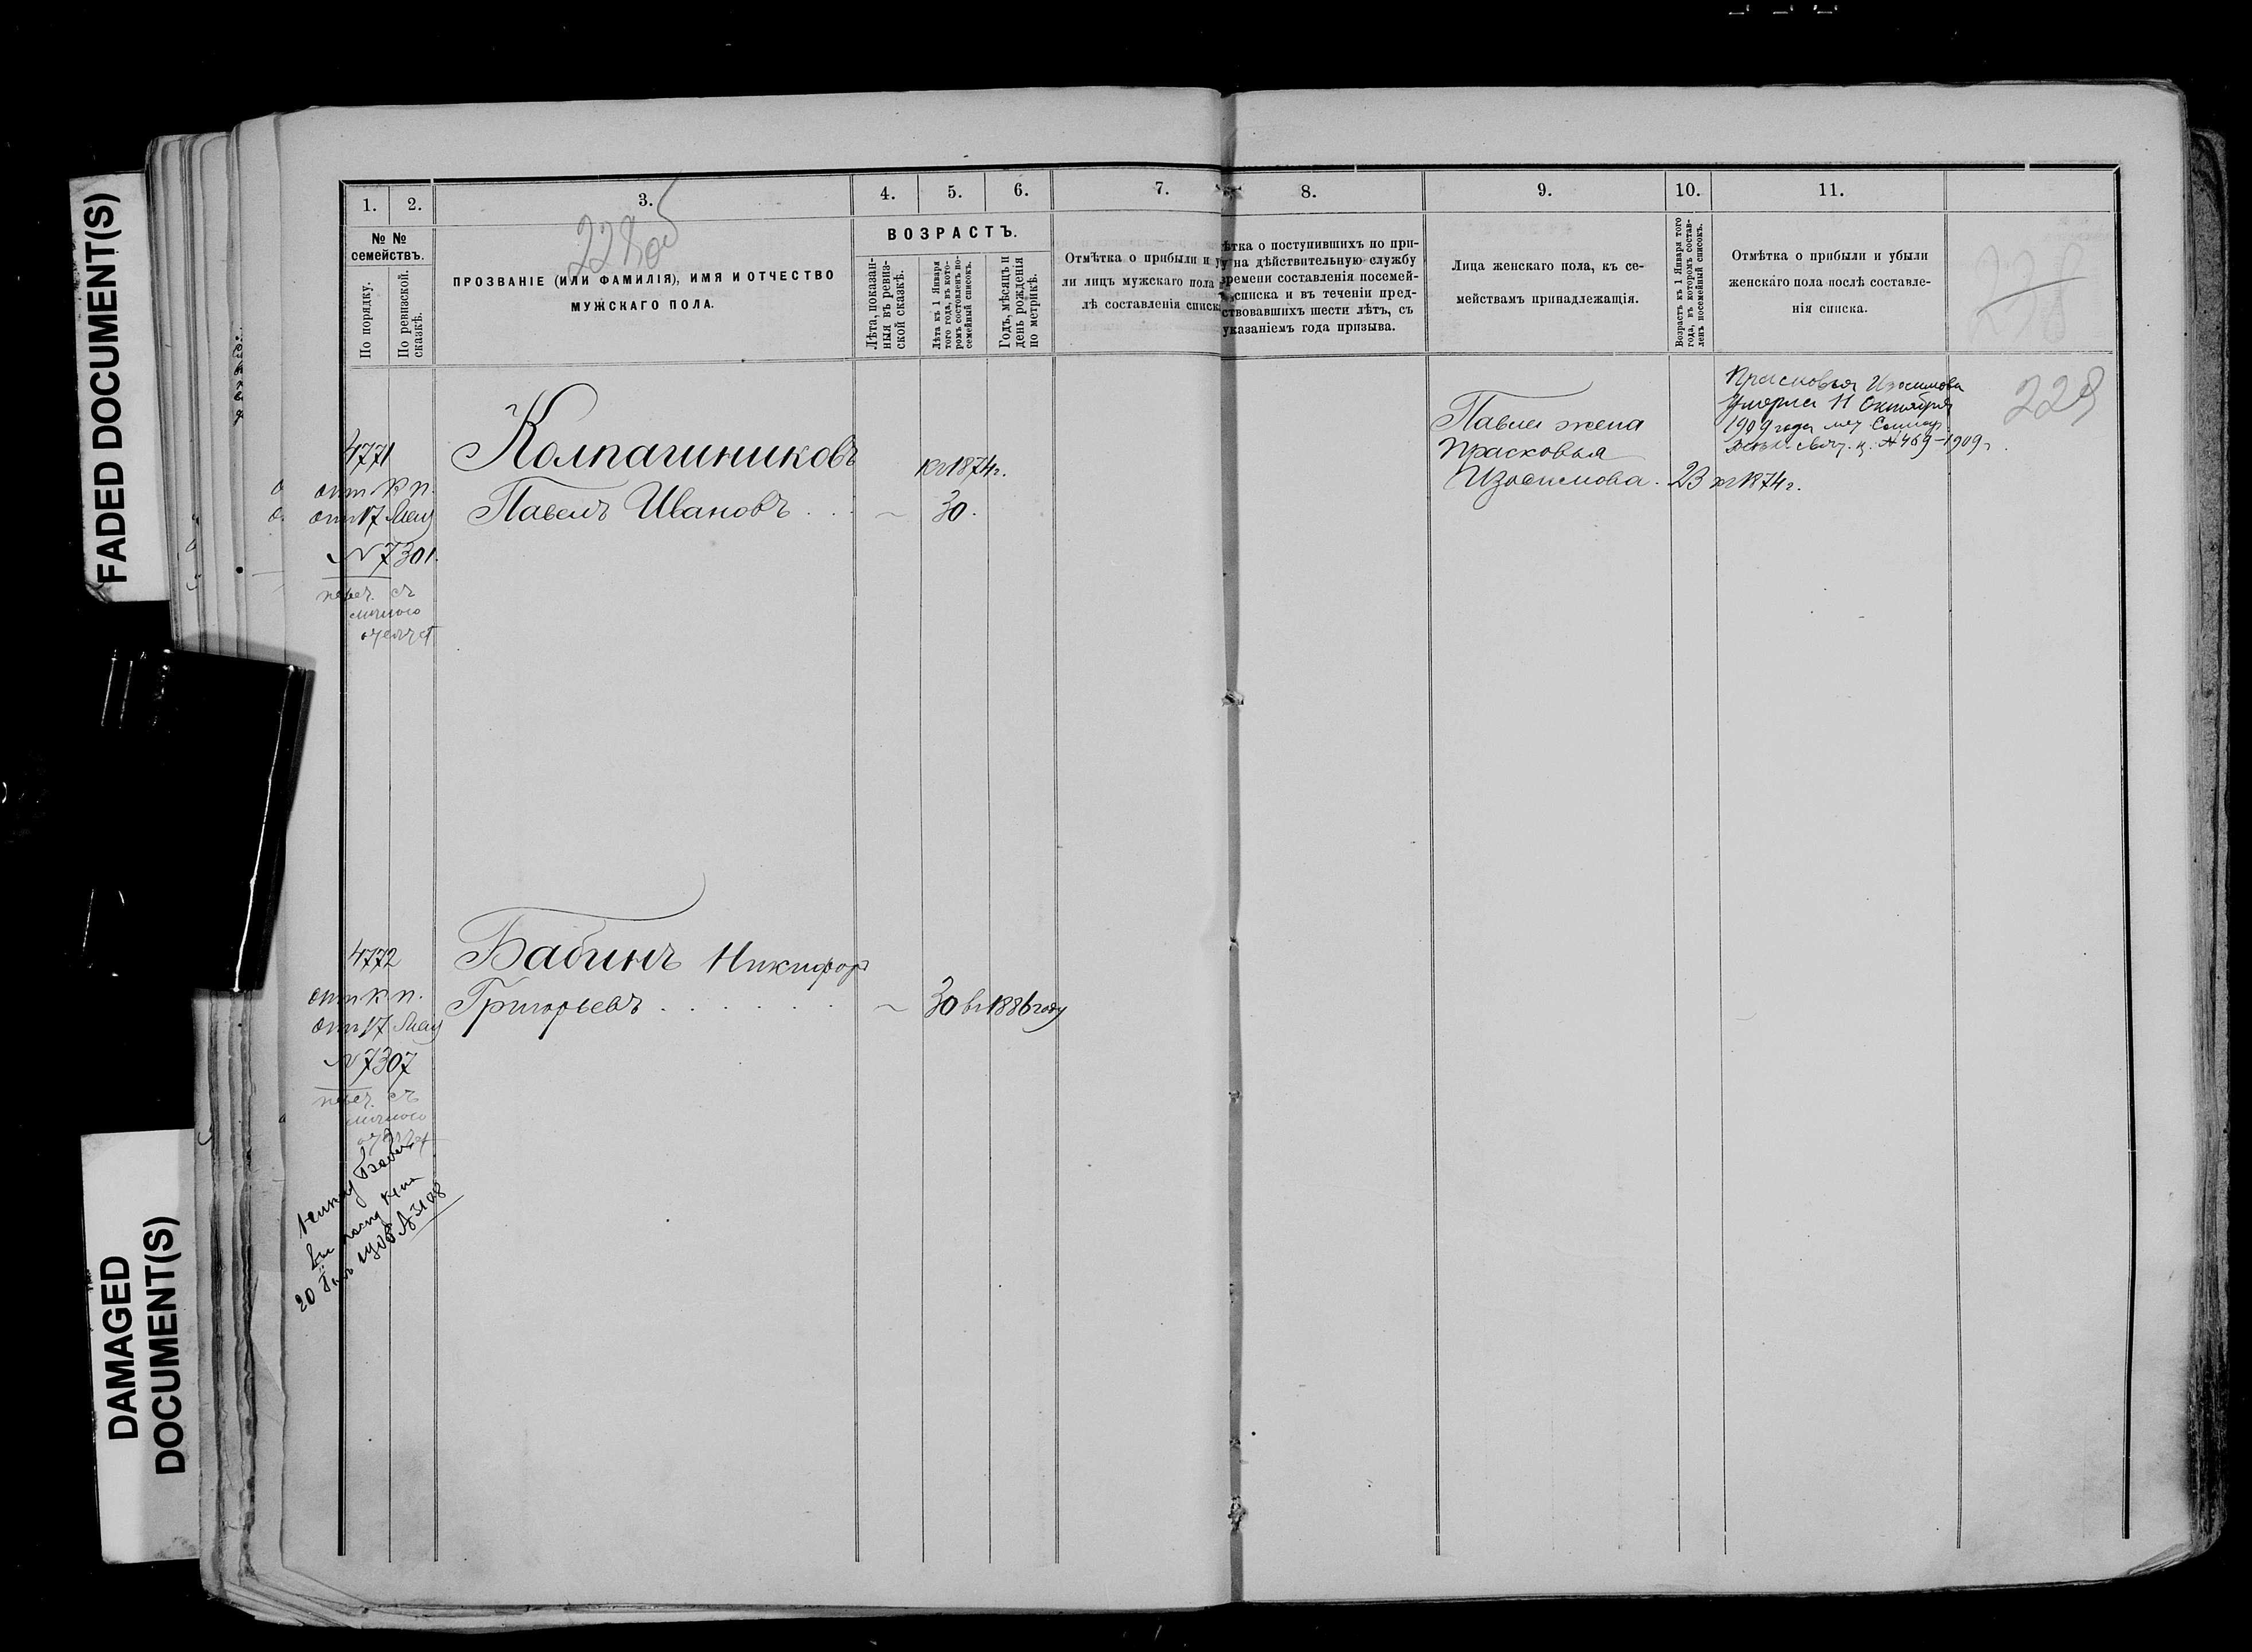 FADED DOCUMENT(S)
DAMAGED
DOCUMENT(S)
1.
2.
3.
4.
5.
6.
7.
8.
9.
10.
11.
228об
№ №
семействъ.
По порядку.
По ревизской.
сказкѣ.
ПРОЗВАНІЕ (ИЛИ ФАМИЛІЯ), ИМЯ И ОТЧЕСТВО
МУЖСКАГО ПОЛА.
ВОЗРАСТЪ.
Лѣта, показан-
ныя въ ревиз-
ской сказкѣ.
Лѣта къ 1 Января
того года, въ кото-
ромъ составленъ по-
семейный списокъ.
Годъ, мѣсяцъ и
день рожденія
по метрикѣ.
Отмѣтка о прибыли и у
ли лицъ мужскаго пола
лѣ составленія списк
ѣтка о поступившихъ по при-
у на дѣйствительную службу
ремени составленія посемей-
списка и въ теченіи пред-
ствовавшихъ шести лѣтъ, съ
указаніемъ года призыва.
Лица женскаго пола, къ се-
мействамъ принадлежащія.
Возрастъ къ 1 Января того
года, въ которомъ состав-
ленъ посемейный списокъ.
Отмѣтка о прибыли и убыли
женскаго пола послѣ составле-
нія списка.
229
4771
отт к п.
отт 17 Мая
№ 7301.
переч. съ
Колпашниковъ
Павелъ Ивановъ . . .
къ 1874 г.
30.
Павла жена
Прасковья
Изосимова. 23 къ 1874 г.
Прасковья Изосимова
умерла 11 Октября
1909 года
№ 469-1909 г.
4772
отт к п.
отт 17 Мая
№ 7307
переч. съ
Бабинъ Никифоръ
Григорьевъ . . . . . .
30 въ 1886 году
20 1908 № 3108